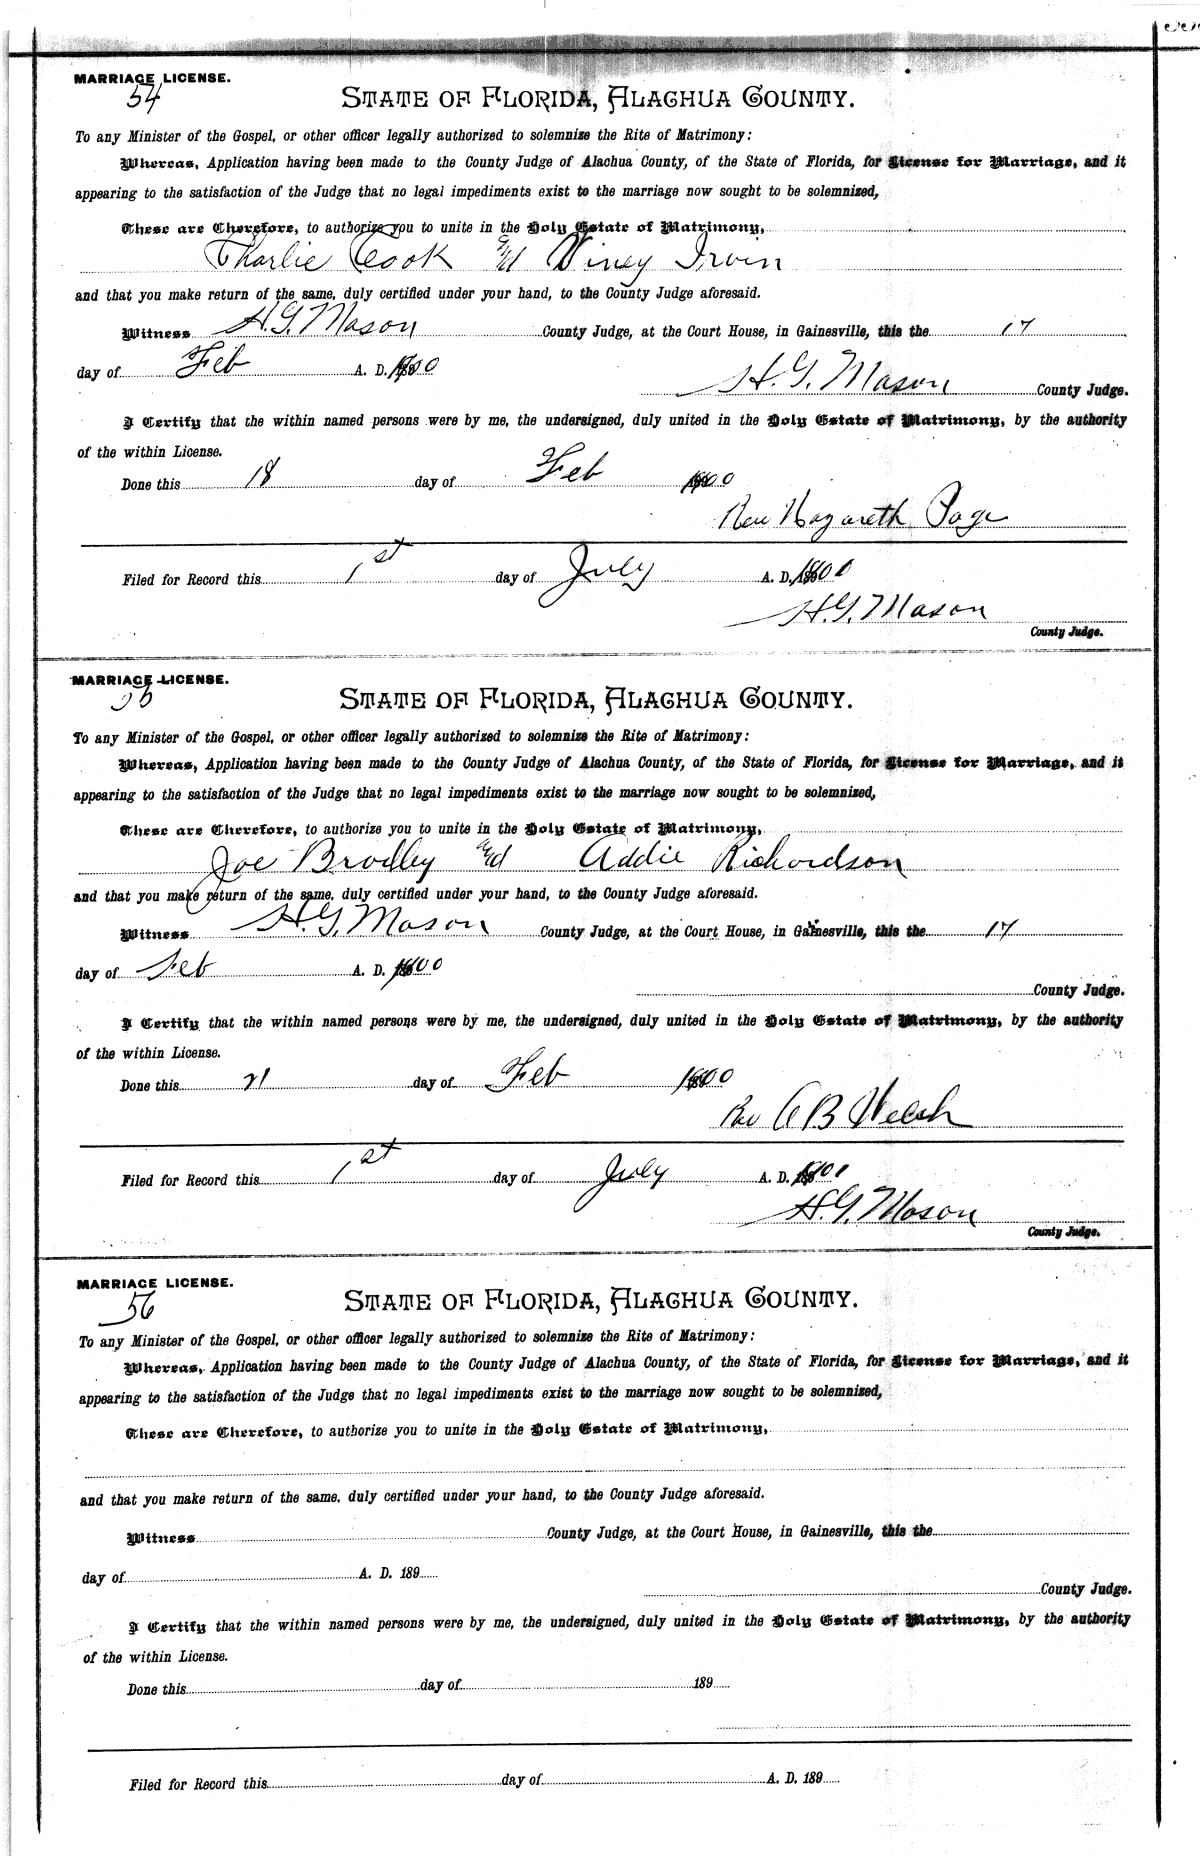 MARRIAGE LICENSE.
54
STATE OF FLORIDA, ALACHUA COUNTY.
To any Minister of the Gospel, or other officer legally authorized to solemnize the Rite of Matrimony:
Whereas, Application having been made to the County Judge of Alachua County, of the State of Florida, for License for Marriage, and it
appearing to the satisfaction of the Judge that no legal impediments exist to the marriage now sought to be solemnized,
These are Therefore, to authorize you to unite in the Holy Estate of Matrimony,
Charlie Cook and Viney Irvin
and that you make return of the same, duly certified under your hand, to the County Judge aforesaid.
Witness H.G. Mason County Judge, at the Court House, in Gainesville, this the 17
day of Feb A. D. 1900
H.G. Mason County Judge.
I Certify that the within named persons were by me, the undersigned, duly united in the Holy Estate of Matrimony, by the authority
of the within License.
Done this 18 day of Feb 1900
Rev Nazareth Page
Filed for Record this 1st day of July A. D. 1901
H.G. Mason
County Judge.
MARRIAGE LICENSE.
STATE OF FLORIDA, ALACHUA COUNTY.
To any Minister of the Gospel, or other officer legally authorized to solemnize the Rite of Matrimony:
Whereas, Application having been made to the County Judge of Alachua County, of the State of Florida, for License for Marriage, and it
appearing to the satisfaction of the Judge that no legal impediments exist to the marriage now sought to be solemnized,
These are Therefore, to authorize you to unite in the Holy Estate of Matrimony,
Joe Bradley and Addie Richardson
and that you make return of the same, duly certified under your hand, to the County Judge aforesaid.
Witness H.G. Mason County Judge, at the Court House, in Gainesville, this the 17
day of Feb A. D. 1900
County Judge.
I Certify that the within named persons were by me, the undersigned, duly united in the Holy Estate of Matrimony, by the authority
of the within License.
Done this 21 day of Feb 1900
Rev A B Welsh
Filed for Record this 1st day of July A. D. 1901
H.G. Mason
County Judge.
MARRIAGE LICENSE.
56
STATE OF FLORIDA, ALACHUA COUNTY.
To any Minister of the Gospel, or other officer legally authorized to solemnize the Rite of Matrimony:
Whereas, Application having been made to the County Judge of Alachua County, of the State of Florida, for License for Marriage, and it
appearing to the satisfaction of the Judge that no legal impediments exist to the marriage now sought to be solemnized,
These are Therefore, to authorize you to unite in the Holy Estate of Matrimony,
and that you make return of the same, duly certified under your hand, to the County Judge aforesaid.
Witness County Judge, at the Court House, in Gainesville, this the
day of A. D. 189
County Judge.
I Certify that the within named persons were by me, the undersigned, duly united in the Holy Estate of Matrimony, by the authority
of the within License.
Done this day of 189
Filed for Record this day of A. D. 189